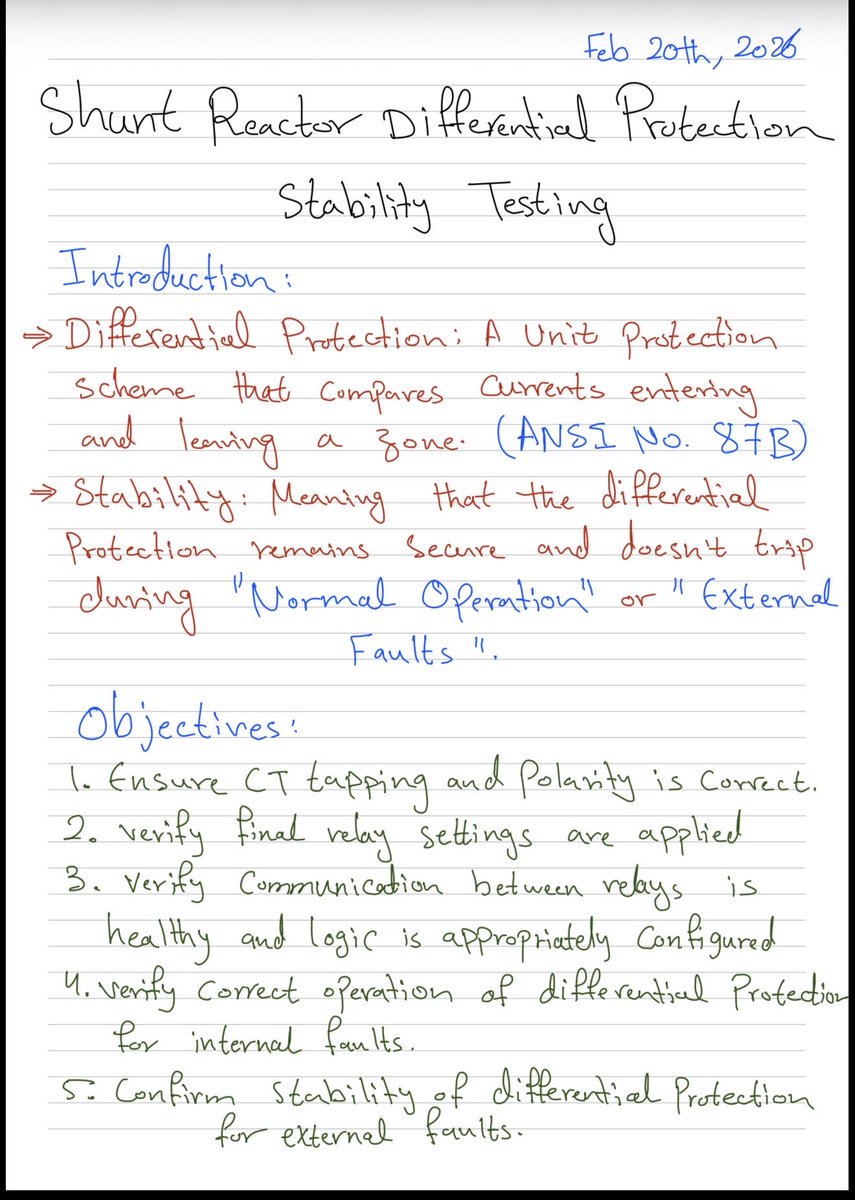 Feb 20th, 2026
Shunt Reactor Differential Protection
Stability Testing
Introduction:
⇒ Differential Protection: A Unit Protection
scheme that compares currents entering
and leaving a zone. (ANSI No. 87B)
⇒ Stability: Meaning that the differential
Protection remains secure and doesn't trip
during "Normal Operation" or "External
Faults".
Objectives:
1. Ensure CT tapping and Polarity is correct.
2. verify final relay settings are applied
3. Verify Communication between relays is
healthy and logic is appropriately configured
4. verify correct operation of differential Protection
for internal faults.
5. Confirm stability of differential Protection
for external faults.